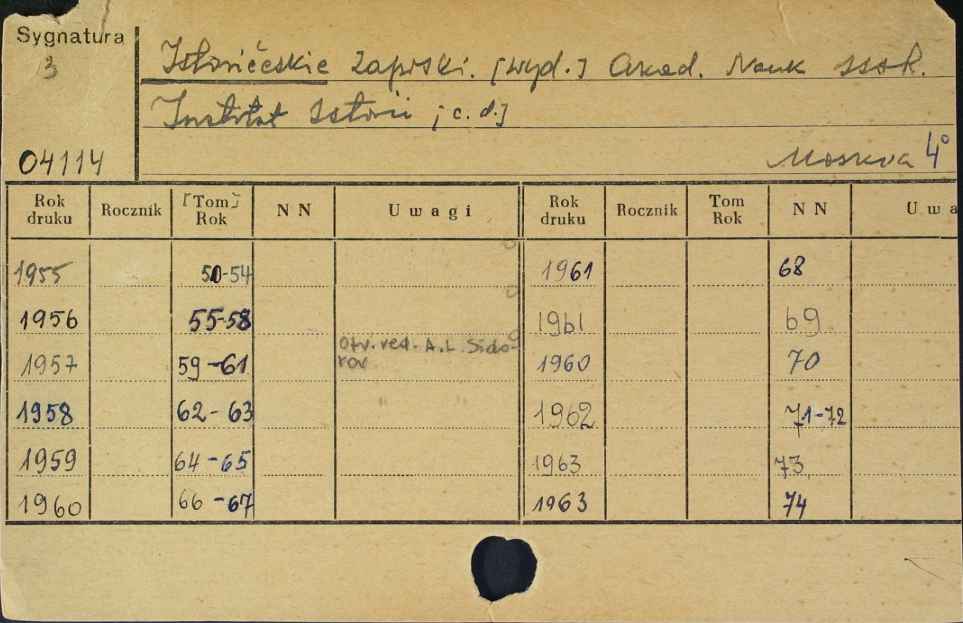 Sygnatura
3
04114
Istoričeskie Zapiski. [wyd.] Akad. Nauk SSSR.
Institut Istorii [c. d.]
Moskva 4°
Rok druku Rocznik [Tom] Rok NN Uwagi Rok druku Rocznik Tom Rok NN Uwa
1955 50-54 1961 68
1956 55-58 1961 69
1957 59-61 Otv. red. A. L. Sido-
rov 1960 70
1958 62-63 " " 1962 71-72
1959 64-65 1963 73
1960 66-67 1963 74